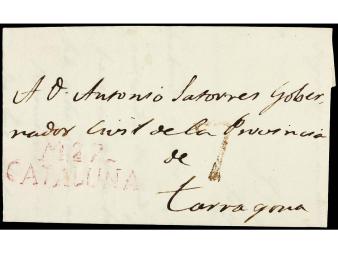 A D. Antonio Satorres Gober-
nador Civil de la Provincia
de
Tarragona
CATALUÑA